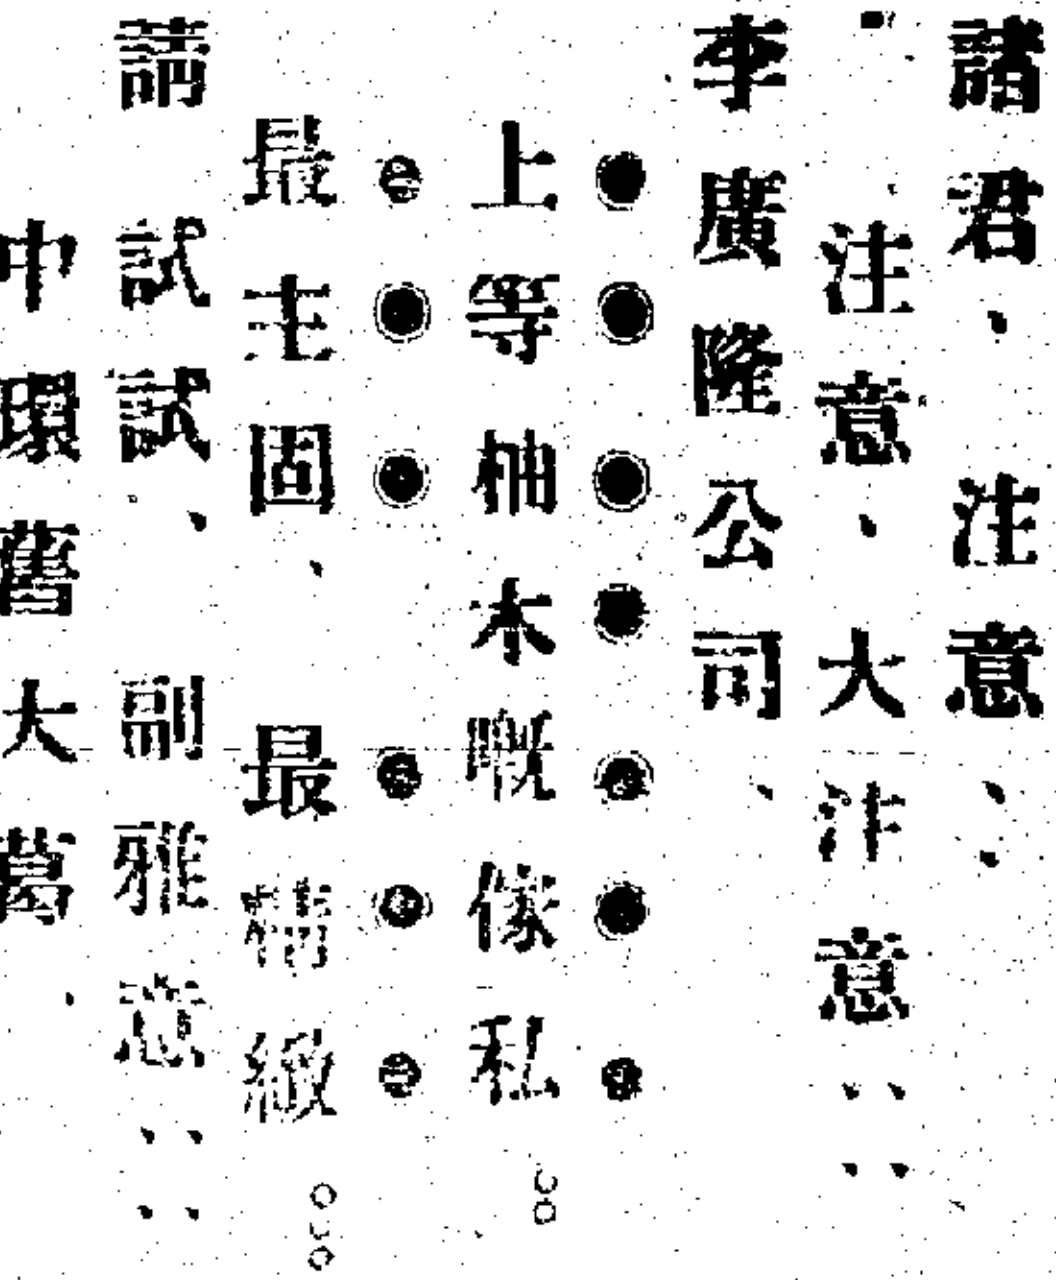 諸君、注意、、
注意、大注意、、、、
李廣隆公司、
上等柚木嘅傢私
最主固、最精緻
請試試、副雅意、、、、
中環舊大葛